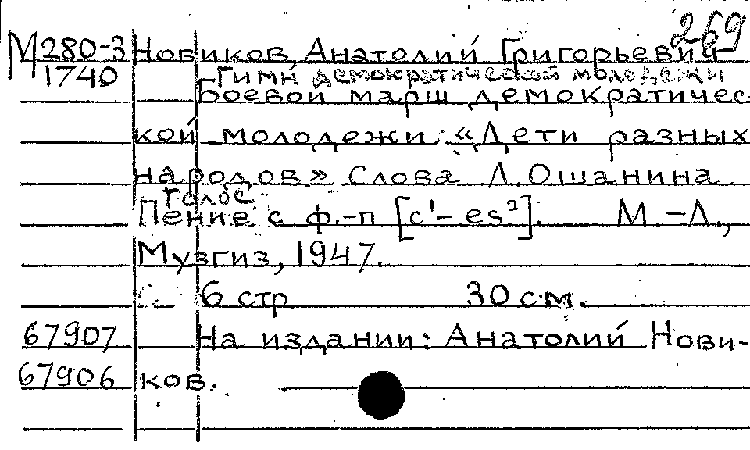 269
М280-3 Новиков, Анатолий Григорьевич
1740 Гимн демократической молодежи
Боевой марш демократичес-
кой молодежи: «Дети разных
народов» Слова Л. Ошанина
Голос
Пение с ф.-п [c¹- es²]. М.-Л.,
Музгиз, 1947.
6 стр 30 см.
67907 На издании: Анатолий Нови-
67906 ков.